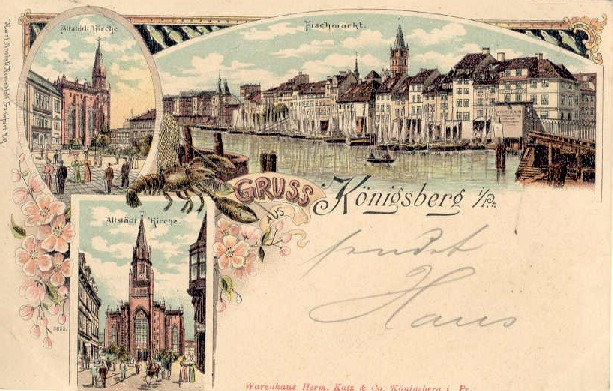 Altstädt. Kirche.
Fischmarkt.
GRUSS
AUS
Königsberg i/Pr.
Altstädt Kirche.
sendet
Hans
Warenhaus Herm. Katz & Co. Königsberg i. Pr.